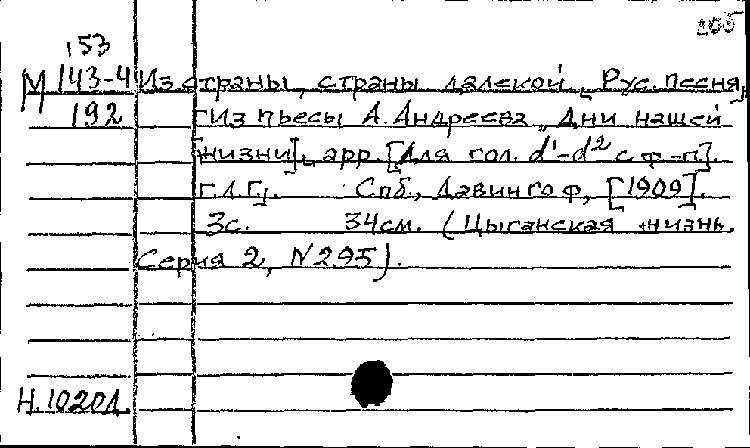 205
153
М 143-4 Из страны, страны далекой. Рус. песня,
192 [из пьесы А. Андреева „Дни нашей
жизни], арр. [для гол. d¹-d² с ф.-п].
Г.А.Гу. Спб., Давингоф, [1909].
3с. 34см. (Цыганская жизнь.
Серия 2, N295).
Н.1020д.